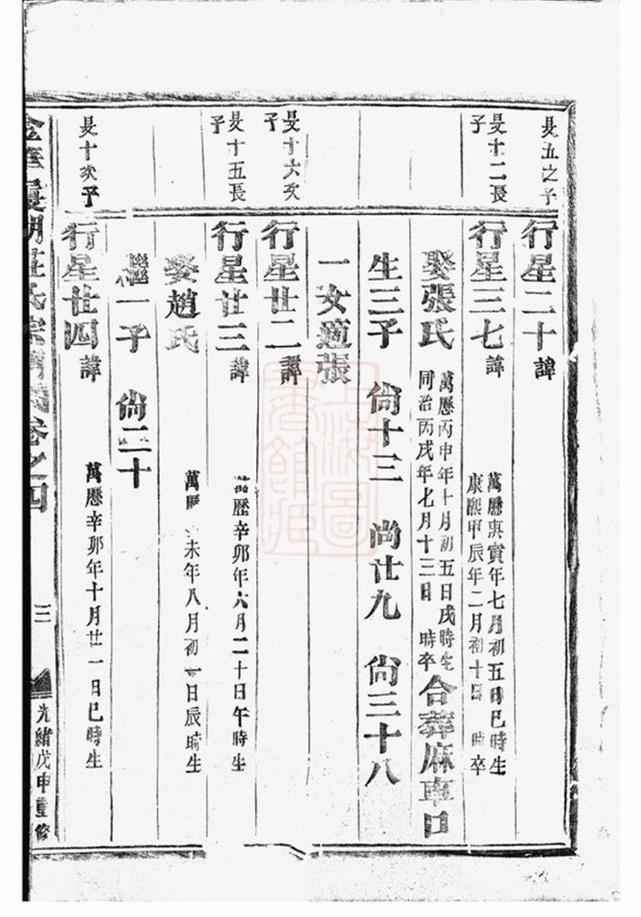 旻五之子
行星二十諱
旻十二長子
行星三七諱
萬曆庚寅年七月初五日巳時生
康熙甲辰年二月初十日 時卒
娶張氏
萬曆丙申年十月初五日戌時生
同治丙戌年七月十三日 時卒
合葬麻車口
生三子 尙十三 尚廿九 尙三十八
一女適張
旻十六次子
行星廿二諱
萬歷辛卯年六月二十日午時生
旻十五長子
行星廿三諱
娶趙氏
萬歷 未年八月初一日辰時生
繼一子 尙二十
旻十次子
行星廿四諱
萬歷辛卯年十月廿一日巳時生
金華 湖莊氏宗譜 卷之四
三
光緒戊申重修
上海圖書館藏